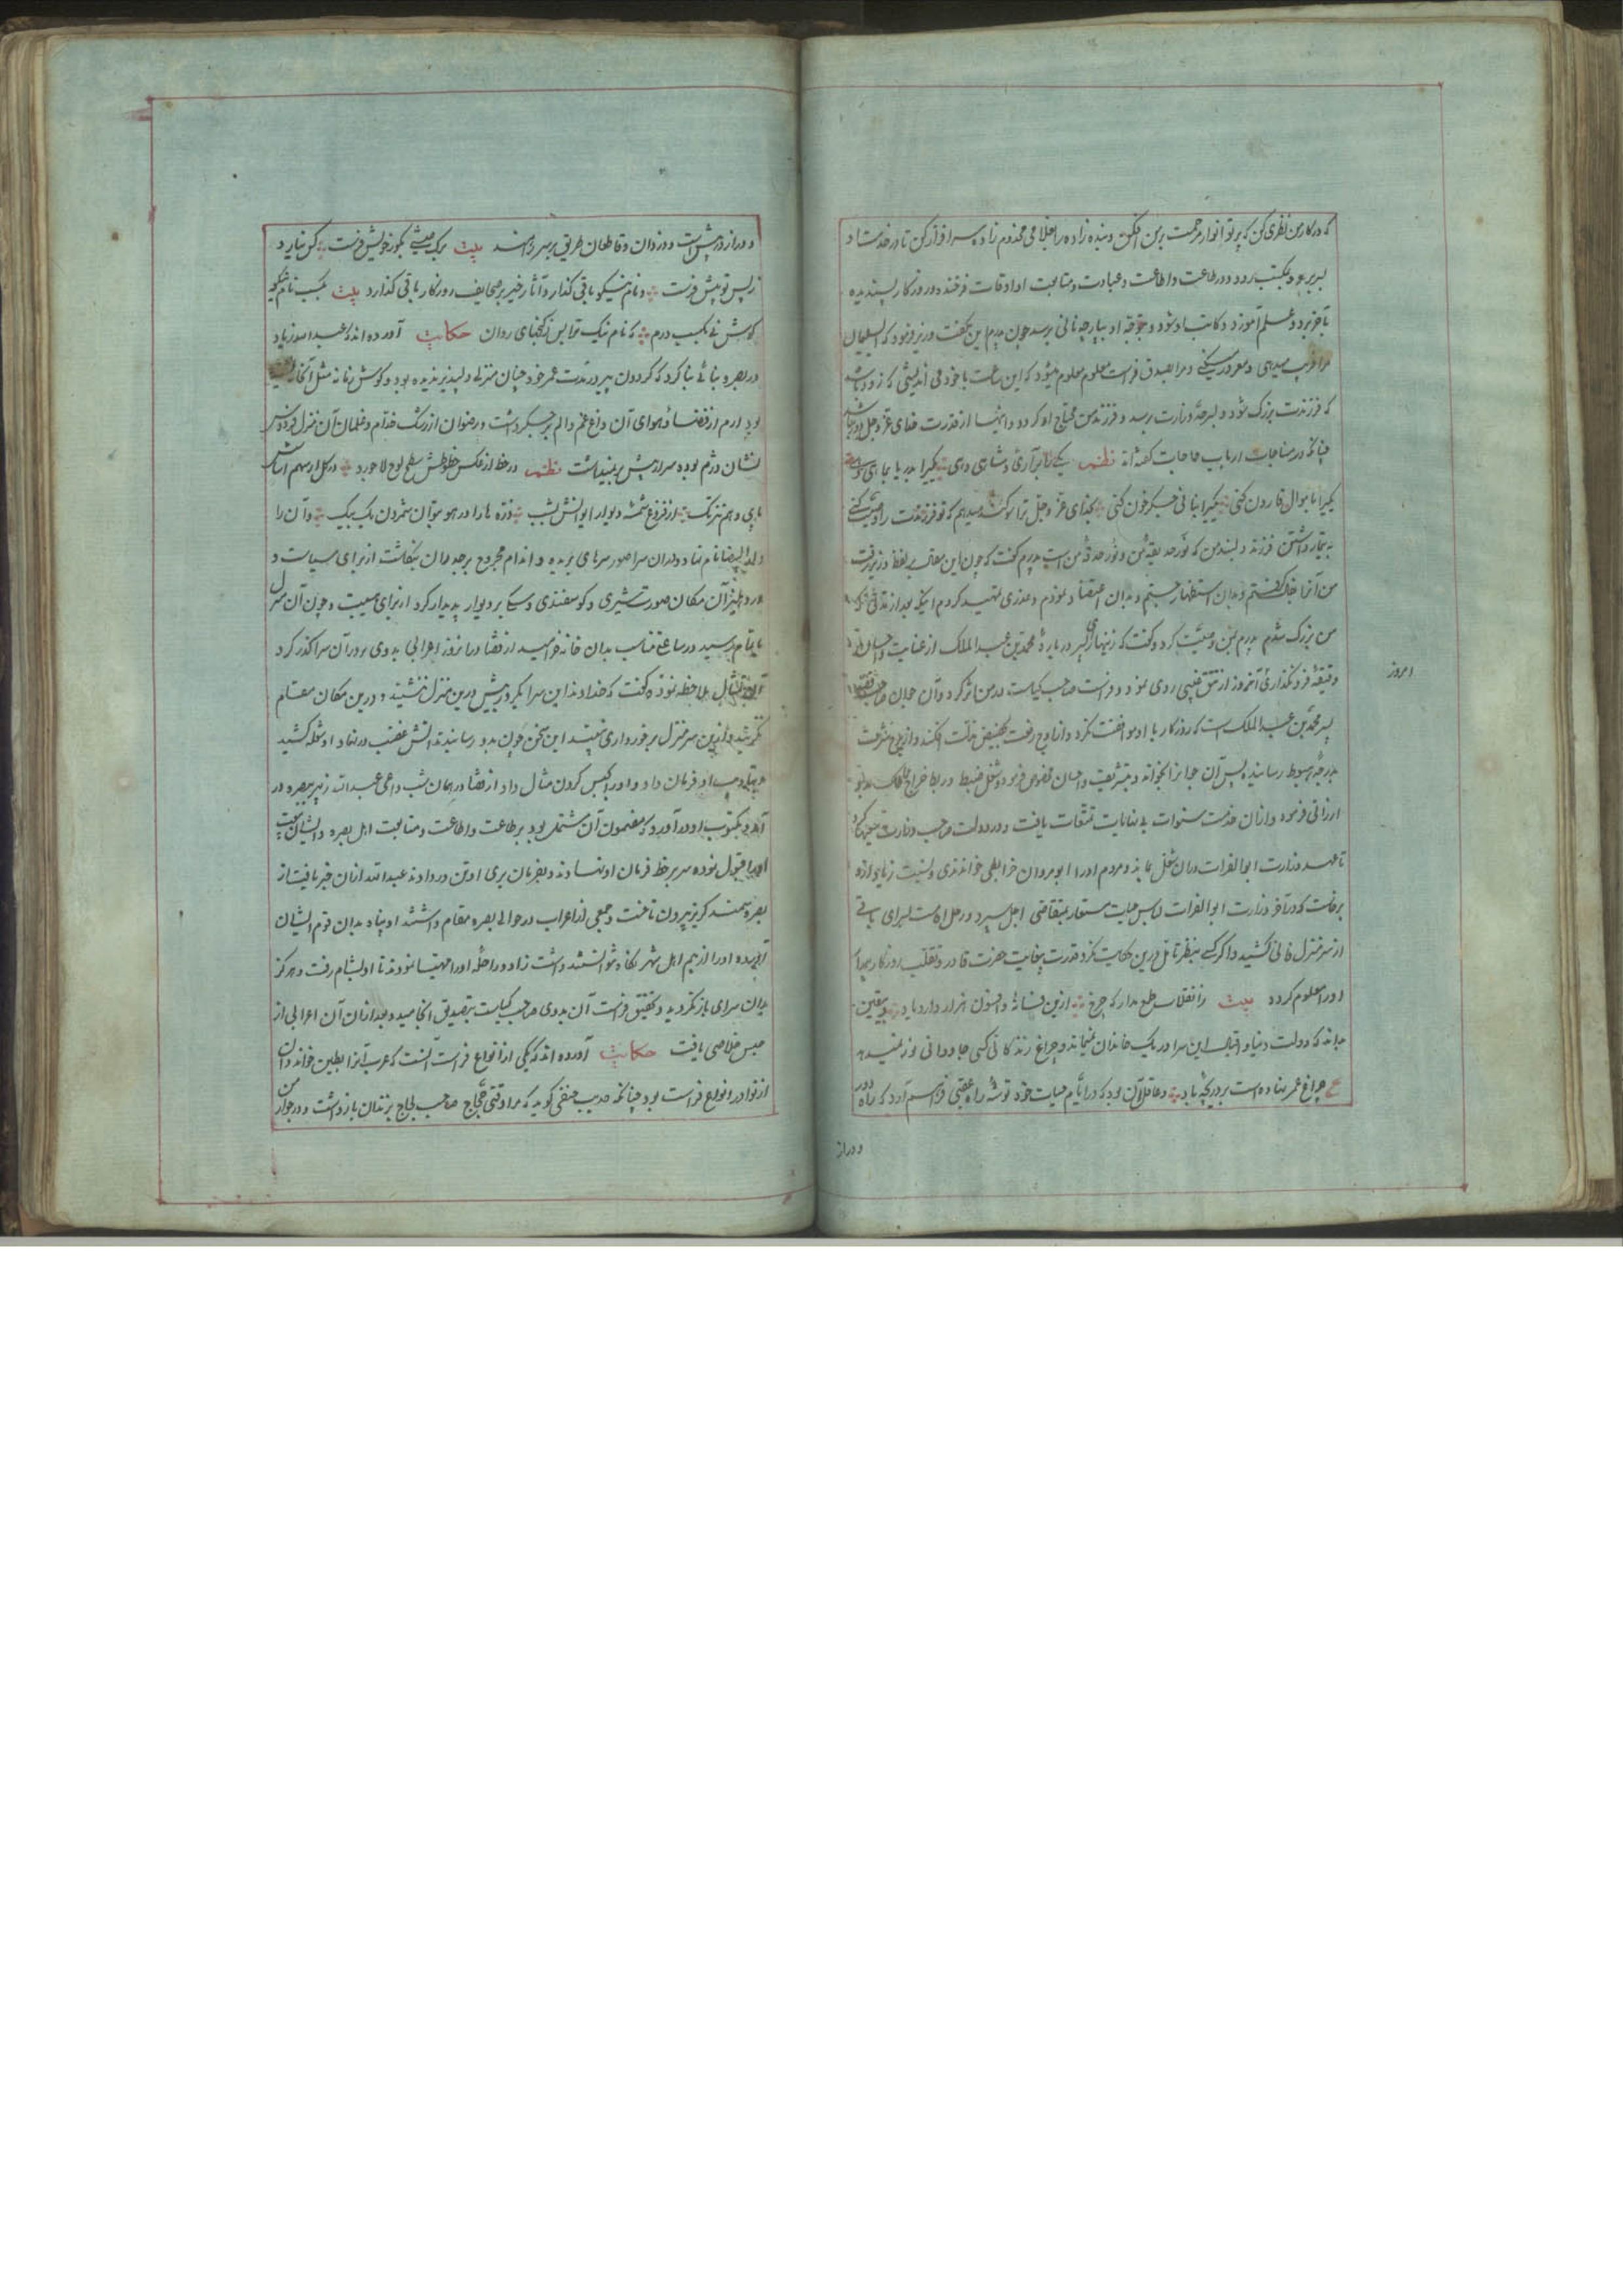 که در کار من نظری کن که پرتو انوار مرحمت بر من افکن و بنده زاده را بغلامی مخدوم زاده سرافراز کن تا در خدمت او
بسر برد و بمکتب رود و در طاعت و اطاعت و عبادت و متابعت او اوقات فرخنده و روزگار پسندیده
باخر برد و علم آموزد و کاتب او شود و بتوجه او بپارچه نانی برسد چون پدرم این بگفت وزیر فرمود که ای سلیمان
مرا فریب میدهی و مغرور میکنی و مرا بصدق فراست معلوم میشود که این ساعت با خود می اندیشی که زود باشد
که فرزندت بزرگ شود و بدرجه وزارت رسد و فرزند من محتاج او گردد و اینها از قدرت خدای عز و جل دور نباشد
چنانکه در مناجات ارباب حاجات گفته اند نظم یکی را برآری و شاهی دهی یکی را بدریا بماهی دهی
یکی را باموال قارون کنی یکی را بنانی جگر خون کنی بخدای عز و جل ترا سوگند میدهم که تو فرزندت را وصیت کنی
به تیمار داشتن فرزند دلبند من که نور حدیقه من و نور حدقه من است پدرم گفت که چون این مقال بلفظ وزیر رفت
من آنرا بدان استظهار جستم و بدان اعتضاد نمودم و عذری تمهید کردم
من بزرگ شدم پدرم بمن وصیت کرد و گفت که زنهار ای پسر در باره محمد بن عبدالملک از عنایت و احسان
دقیقه فرو نگذاری امروز از تتق غیبی روی نمود و فراست صاحب کیاست در من اثر کرد و آن جوان
پسر محمد بن عبدالملک است که روزگار با او موافقت نکرد و از اوج رفعت بحضیض مذلت افکند
بدرجه هبوط رسانیده پس آن جوانرا بخواند و بتشریف و احسان مخصوص فرمود و شغل ضبط و ربط خراج
ارزانی فرمود و از آن خدمت سنوات بی نهایات تمتعات یافت و در دولت صاحب وزارت
تا عهد وزارت ابو الفرات در آن شغل بماند و مردم او را ابو مروان خرایطی خواندندی
برفت که در آخر وزارت ابو الفرات لباس حیات مستعار بمتقاضی اجل سپرد و رحل اقامت بسرای باقی
از سر منزل فانی کشید و اگر کسی بنظر تامل درین حکایت نگرد قدرت بیغایت حضرت قادر و تقلب روزگار
او را معلوم گردد بیت ز انقلاب طمع مدار که چرخ ازین فسانه و افسون هزار دارد یاد و بیقین
بداند که دولت دنیا و اقبال این سرا در یک خاندان نمیماند و چراغ زندگانی کسی جاودانی نور نمیدهد
ع چراغ عمر نهاده است بر دریچه باد و عاقل آن بود که در ایام حیات خود توشه راه عقبی فراهم آرد که راه دور
امروز
و دراز
و دراز در پیش است و دزدان و قاطعان طریق بر سر راهند بیت برگ عیشی بگور خویش فرست کس نیارد
ز پس تو پیش فرست و نام نیکو باقی گذارد و آثار خیر بر صحایف روزگار باقی گذارد بیت بکسب نام نیکو
کوش نی بکسب درم که نام نیک ترا به ز گنجهای روان حکایت آورده اند که عبیدالله زیاد
در بصره بنائی بنا کرد که گردون پیر در مدت عمر خود چنان منزلی دلپذیر ندیده بود و گوش زمانه مثل آنجا
بود ارم از فضا و هوای آن داغ غم و الم بر جگر داشت و رضوان از رشک خدام و غلمان آن منزل فردوس
نشان دژم بوده سر از پیش بر نمیداشت نظم در خط از عکس خطوطش سطح لوح لاجورد در کل از سهم اساسش
پای وهم تیز تک از فروغ شمسه دیوار ایوانش بشب ذره ها را در هوا بتوان شمردن یک بیک و آن را
دار البیضا نام نهاد و در آن سرا صور سرهای بریده و اندام مجروح بر جدران بنگاشت از برای سیاست و
در دهلیز آن مکان صورت شیری و گوسفندی و سگی بر دیوار پدیدار کرد از برای هیبت و چون آن منزل
باتمام رسید در ساعتی مناسب بدان خانه خرامید از قضا در آنروز اعرابی بدوی بر در آن سرا گذر کرد
تماثیل ملاحظه نموده گفت که خداوند این سرا یکروز بیش درین منزل ننشیند و درین مکان مقام
نگزیند و ازین سر منزل برخورداری نبیند این سخن چون بدو رسانیدند آتش غضب در نهاد او شعله کشید
او فرمان داد و او را بحبس کردن مثال داد از قضا در همان شب داعی عبدالله زبیر ببصره در
آمد و مکتوب او در آورد که مضمون آن مشتمل بود بر طاعت و اطاعت و متابعت اهل بصره و ایشان بیعت
او را قبول نموده سر بر خط فرمان او نهادند و بفرمان بری او تن در دادند عبیدالله از آن خبر یافت از
بصره سمند گریز بیرون تاخت و جمعی از اعراب در حوالی بصره مقام داشتند او پناه بدان قوم ایشان
او را از بیم اهل شهر نگاه نتوانستند داشت زاد و راحله او را مهیا نمودند تا او بشام رفت و هرگز
بدان سرای باز نگردید و تحقیق فراست آن بدوی صاحب کیاست بتصدیق انجامید و بعد از آن آن اعرابی از
حبس خلاصی یافت حکایت آورده اند که یکی از انواع فراست آنست که عرب آنرا بطین خوانند و آن
از نوادر انواع فراست بود چنانکه حنفی گوید که مرا وقتی حجاج صاحب لجاج بزندان باز داشت و در جوار من